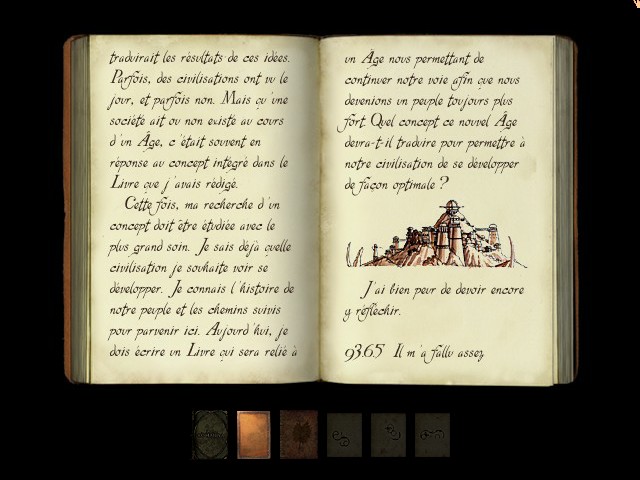 traduirait les résultats de ces idées.
Parfois, des civilisations ont vu le
jour, et parfois non. Mais qu'une
société ait ou non existé au cours
d'un Âge, c'était souvent en
réponse au concept intégré dans le
Livre que j'avais rédigé.
Cette fois, ma recherche d'un
concept doit être étudiée avec le
plus grand soin. Je sais déjà quelle
civilisation je souhaite voir se
développer. Je connais l'histoire de
notre peuple et les chemins suivis
pour parvenir ici. Aujourd'hui, je
dois écrire un Livre qui sera relié à
un Âge nous permettant de
continuer notre voie afin que nous
devenions un peuple toujours plus
fort. Quel concept ce nouvel Âge
devra-t-il traduire pour permettre à
notre civilisation de se développer
de façon optimale ?
J'ai bien peur de devoir encore
y réfléchir.
93.6.5 Il m'a fallu assez